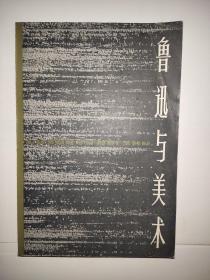 鲁迅与美术